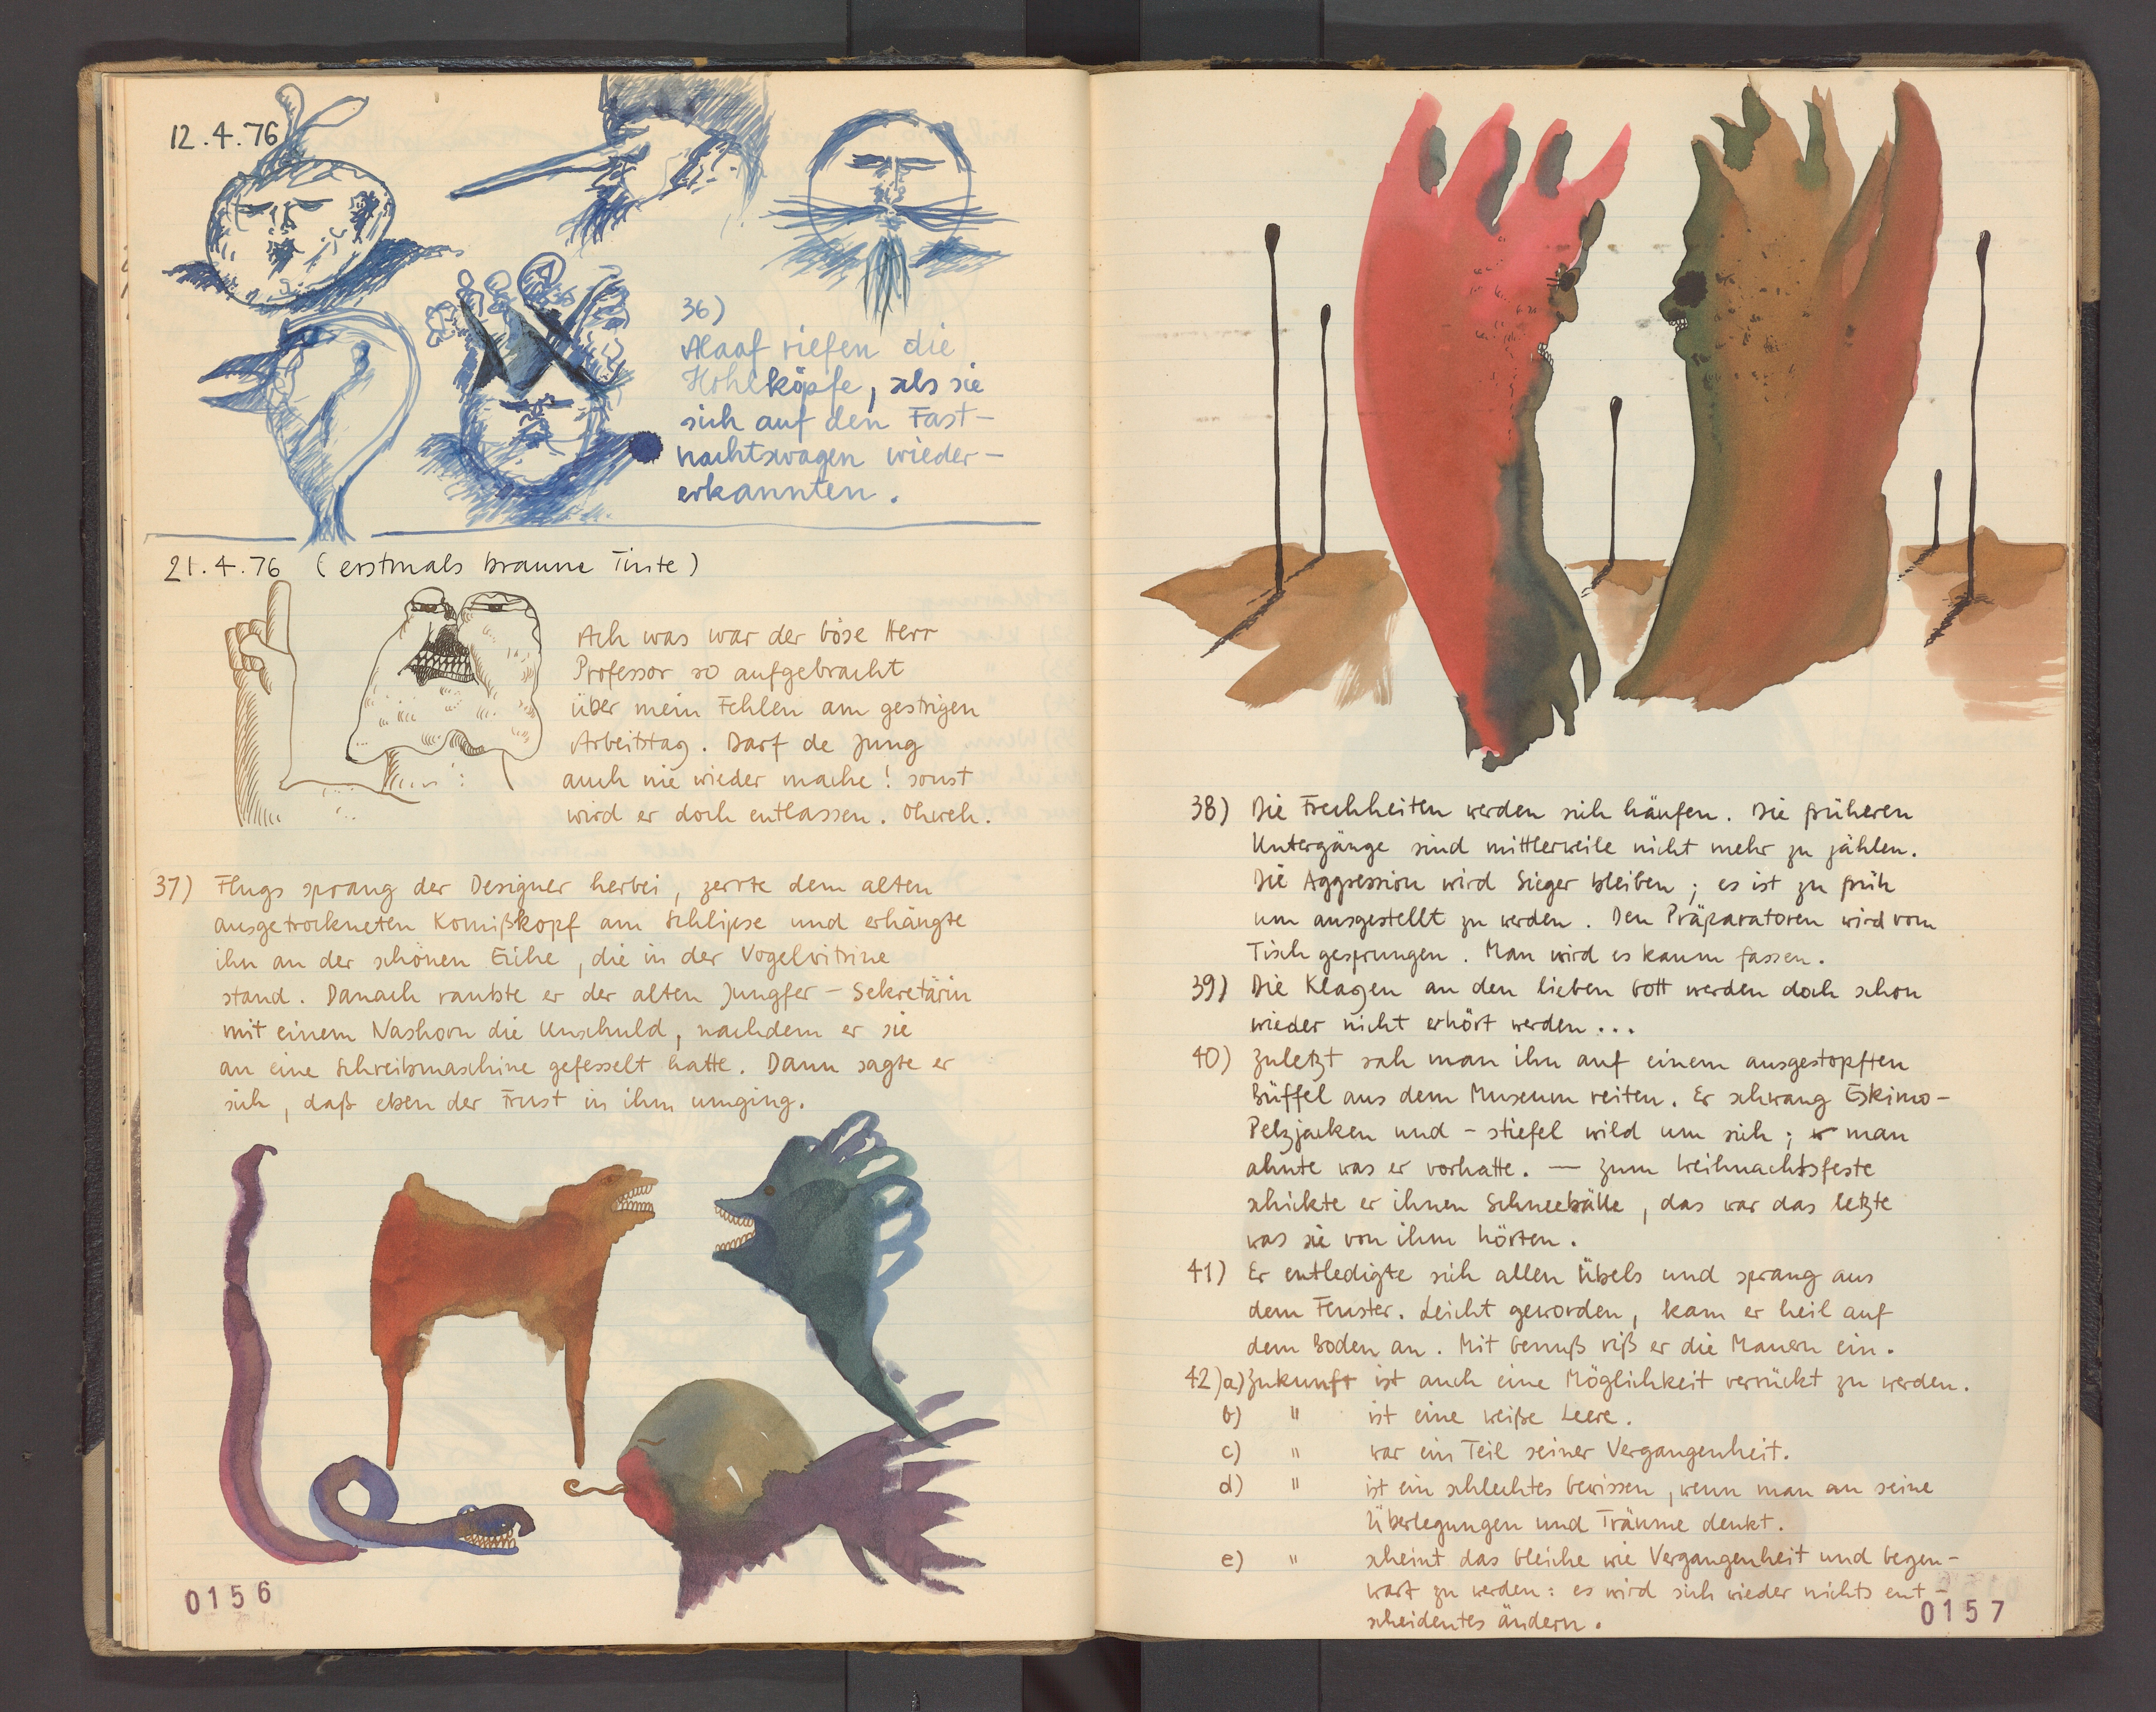 12.4.76
36)
Alaaf riefen die
Hohlköpfe, als sie
sich auf den Fast-
nachtswagen wieder-
erkannten.
21.4.76 (erstmals braune Tinte)
Ach was war der böse Herr
Professor so aufgebracht
über mein Fehlen am gestrigen
Arbeitstag. Darf de Jung
auch nie wieder mache! sonst
wird er doch entlassen. Ohweh.
37) Flugs sprang der Designer herbei, zerrte dem alten
ausgetrockneten Komißkopf am Schlipse und erhängte
ihn an der schönen Eiche, die in der Vogelvitrine
stand. Danach raubte er der alten Jungfer-Sekretärin
mit einem Nashorn die Unschuld, nachdem er sie
an eine Schreibmaschine gefesselt hatte. Dann sagte er
sich, daß eben der Frust in ihm umging.
0156
38) Die Frechheiten werden sich häufen. Die früheren
Untergänge sind mittlerweile nicht mehr zu zählen.
Die Aggression wird Sieger bleiben; es ist zu früh
um ausgestellt zu werden. Den Präparatoren wird vom
Tisch gesprungen. Man wird es kaum fassen.
39) Die Klagen an den lieben Gott werden doch schon
wieder nicht erhört werden...
40) Zuletzt sah man ihn auf einem ausgestopften
Büffel aus dem Museum reiten. Er schwang Eskimo-
Pelzjacken und -stiefel wild um sich; man
ahnte was er vorhatte. — Zum Weihnachtsfeste
schickte er ihnen Schneebälle, das war das letzte
was sie von ihm hörten.
41) Er entledigte sich allen Übels und sprang aus
dem Fenster. Leicht geworden, kam er heil auf
dem Boden an. Mit Genuß riß er die Mauern ein.
42)a) Zukunft ist auch eine Möglichkeit verrückt zu werden.
b) " ist eine weiße Leere.
c) " war ein Teil seiner Vergangenheit.
d) " ist ein schlechtes Gewissen, wenn man an seine
Überlegungen und Träume denkt.
e) " scheint das Gleiche wie Vergangenheit und Gegen-
wart zu werden: es wird sich wieder nichts ent-
scheidentes ändern.
0157